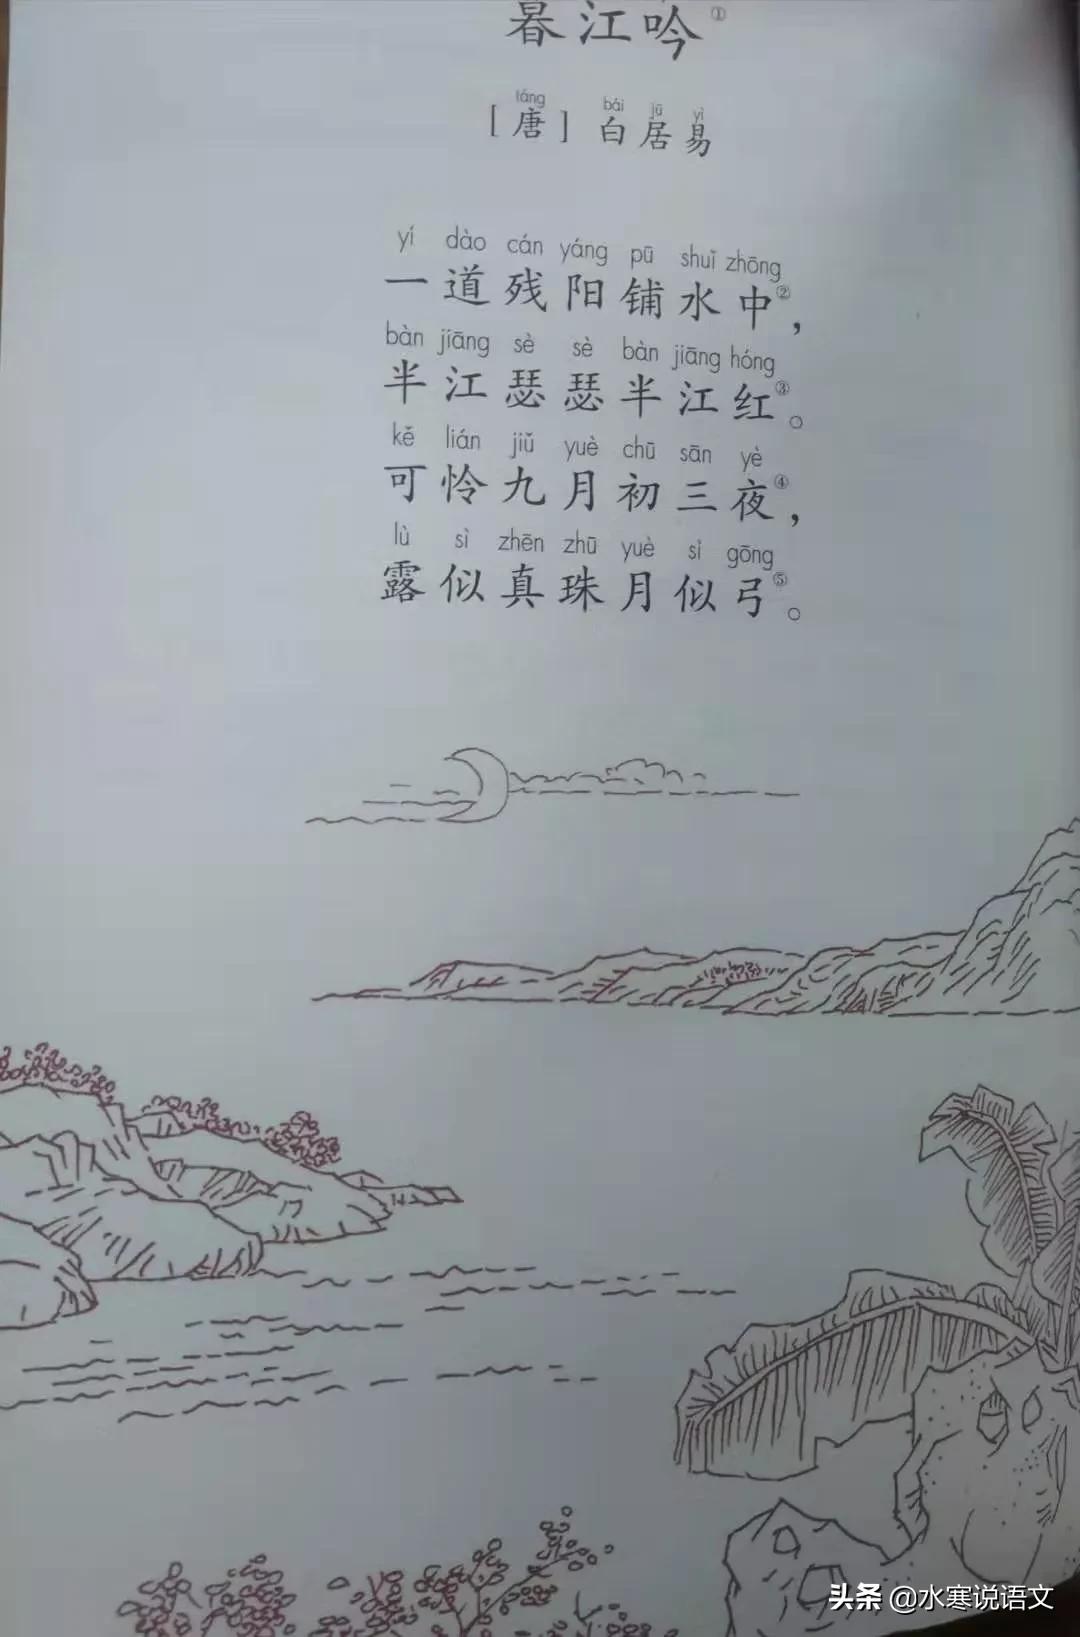 暮江吟①
táng bái jū yì
[唐] 白居易
yí dào cán yáng pū shuǐ zhōng
一道残阳铺水中②，
bàn jiāng sè sè bàn jiāng hóng
半江瑟瑟半江红③。
kě lián jiǔ yuè chū sān yè
可怜九月初三夜④，
lù sì zhēn zhū yuè sì gōng
露似真珠月似弓⑤。
头条 @水寒说语文